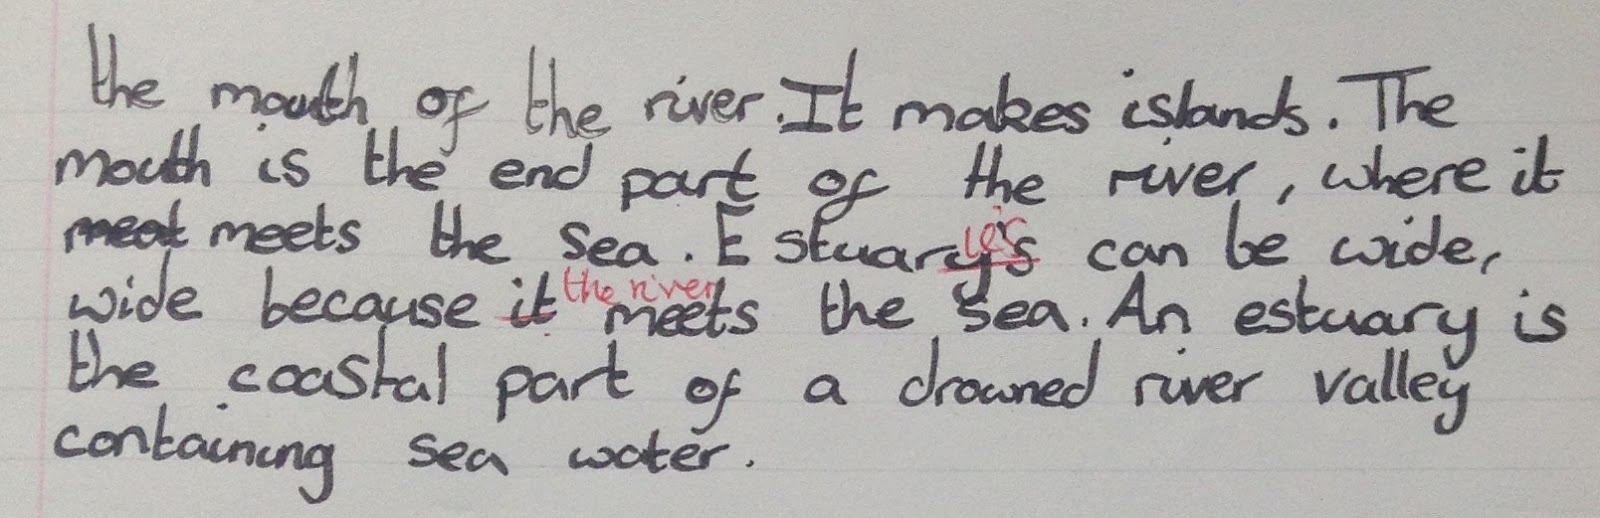 the mouth of the river. It makes islands. The
mouth is the end part of the river, where it
meat meets the sea. Estuary's ies can be wide,
wide because it the river meets the sea. An estuary is
the coastal part of a drowned river valley
containing sea water.